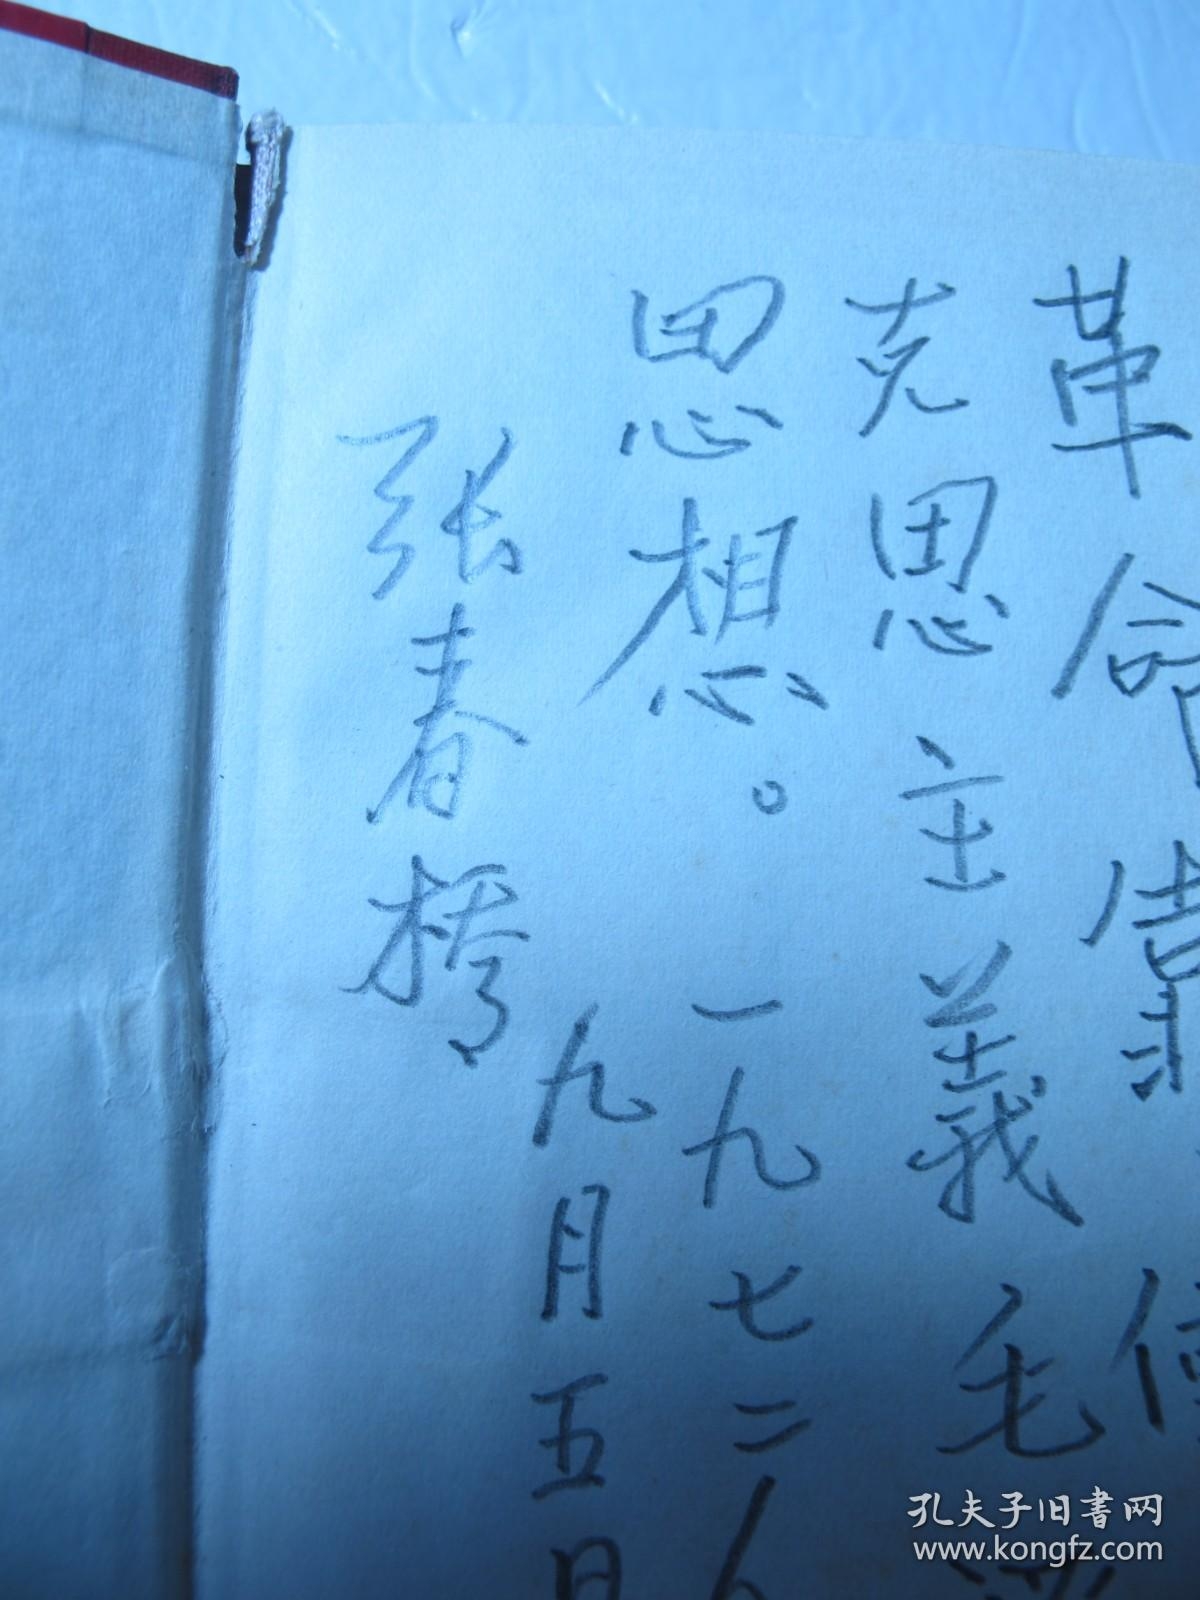 革命
克思主義毛
思想。一九七二
九月五日
张春桥
孔夫子旧书网
www.kongfz.com